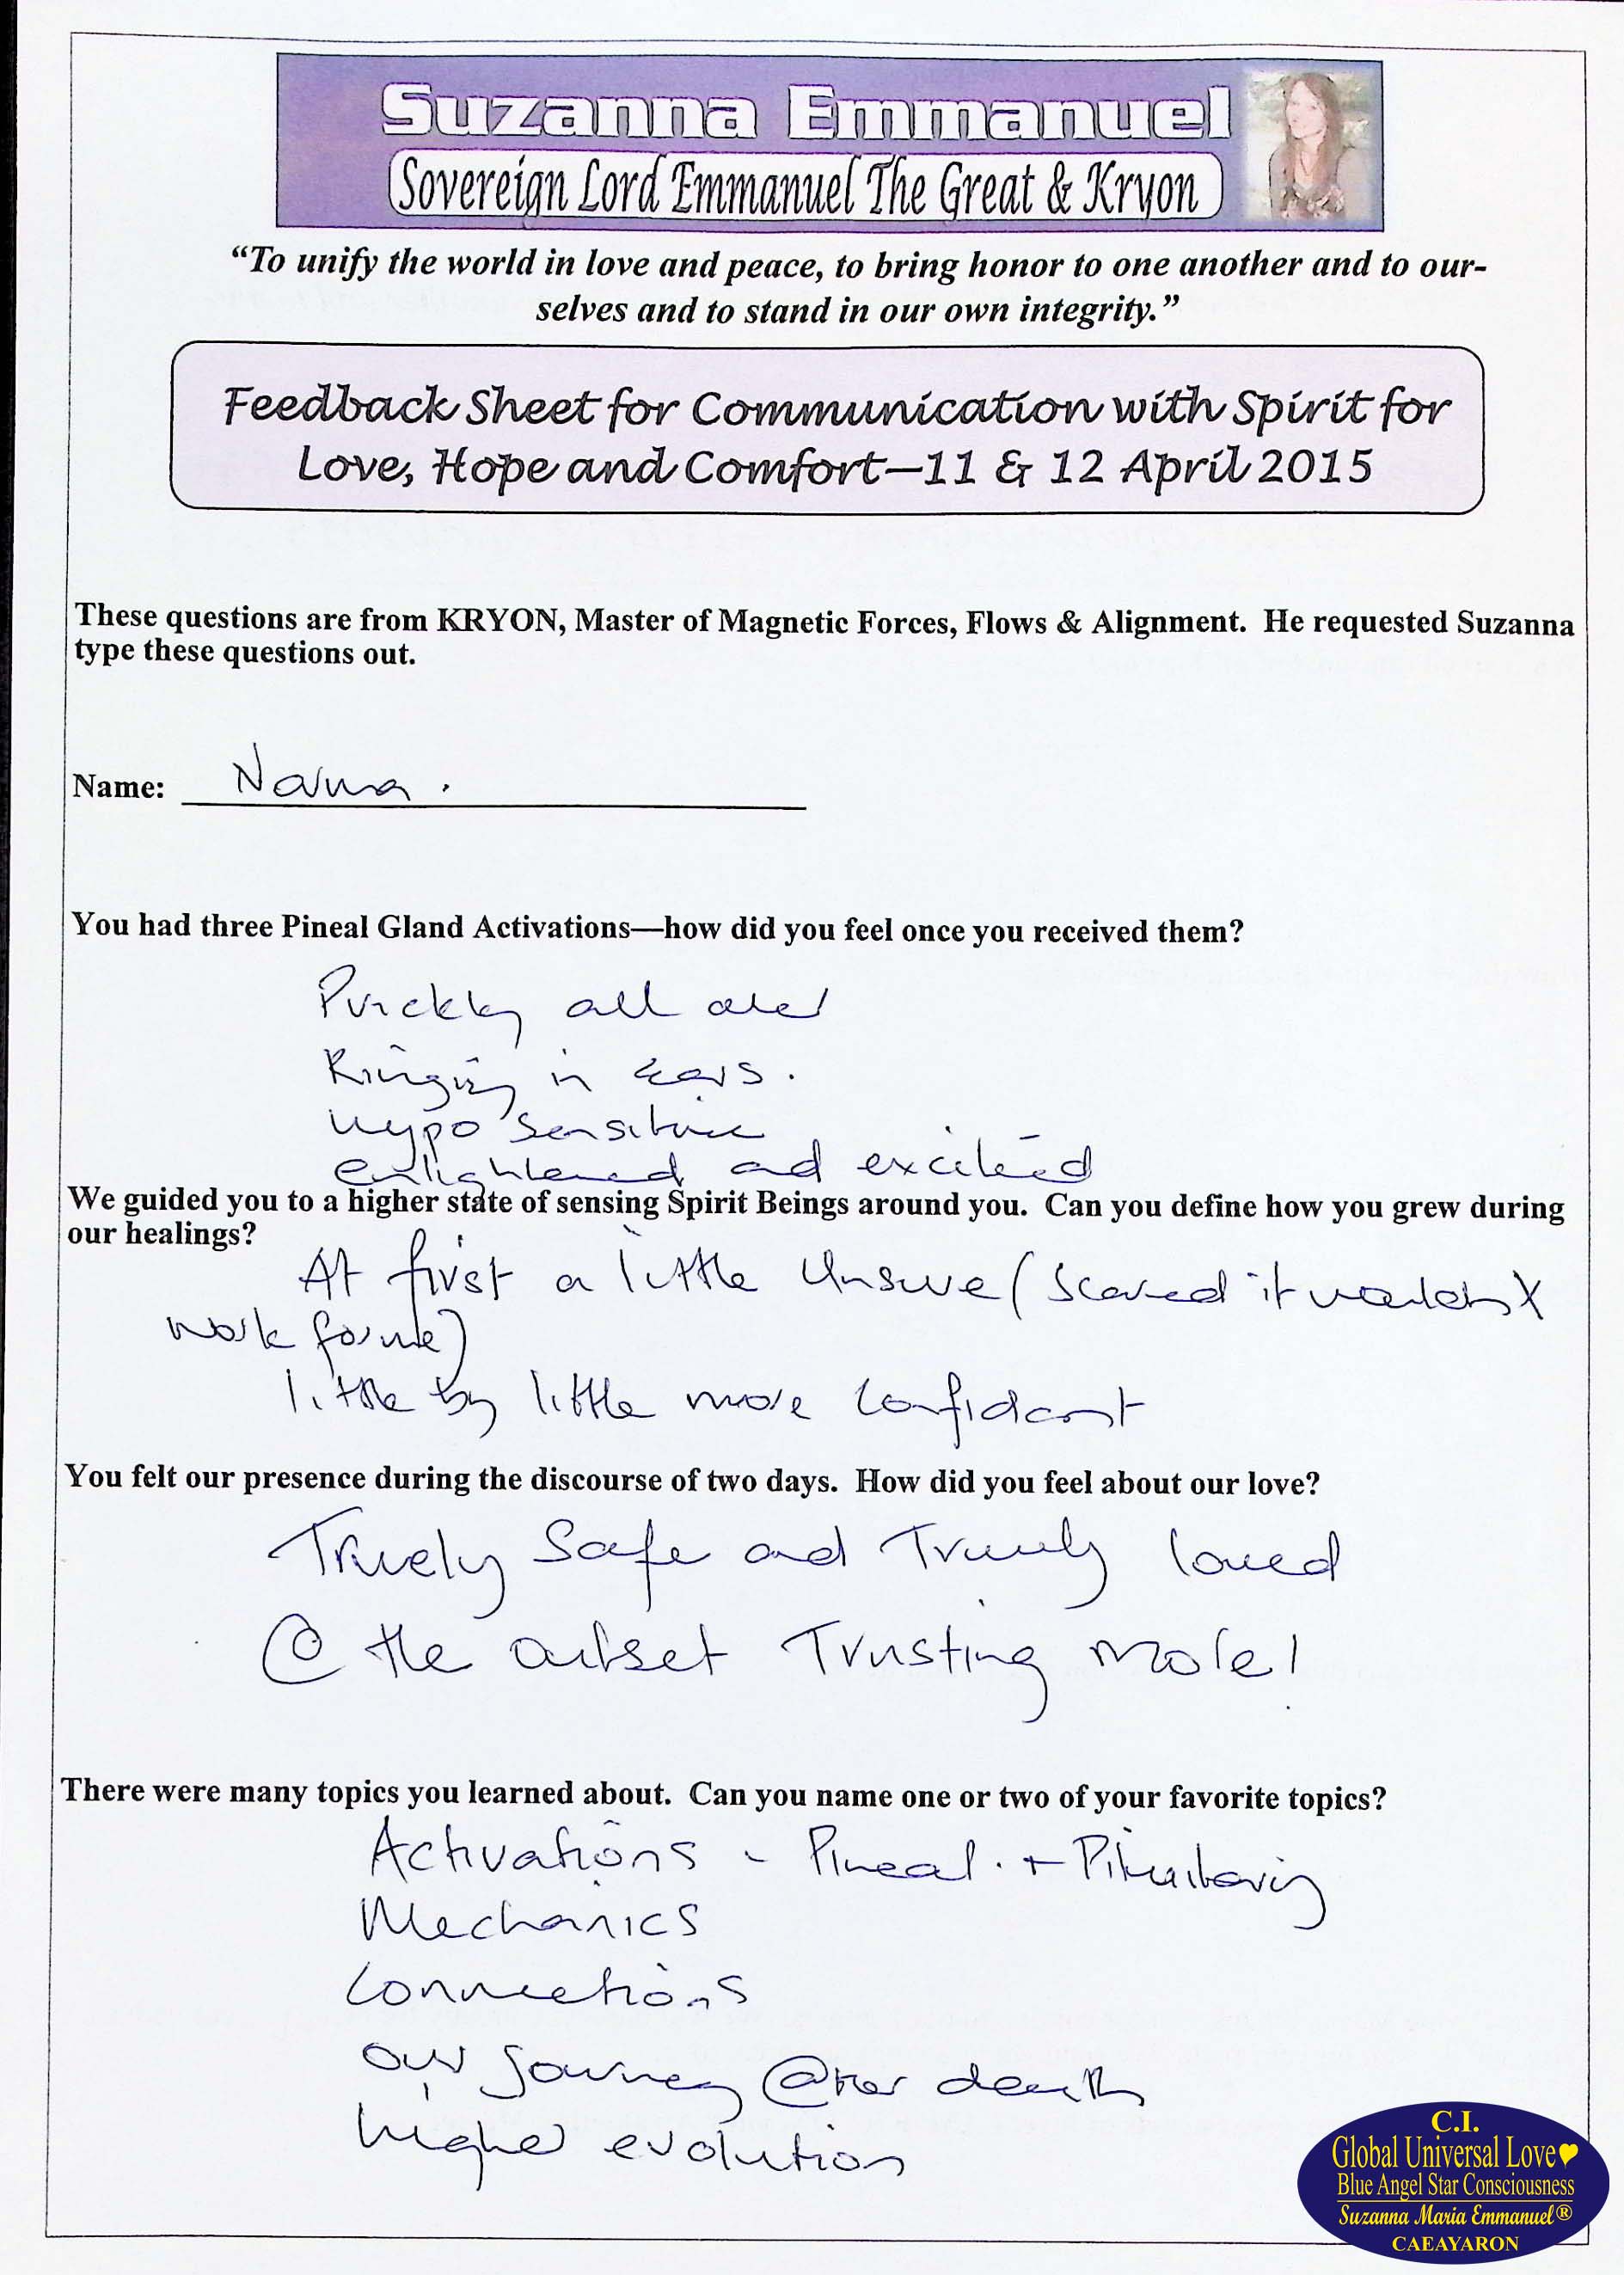 Suzanna Emmanuel
Sovereign Lord Emmanuel The Great & Kryon
“To unify the world in love and peace, to bring honor to one another and to our-
selves and to stand in our own integrity.”
Feedback Sheet for Communication with Spirit for
Love, Hope and Comfort—11 & 12 April 2015
These questions are from KRYON, Master of Magnetic Forces, Flows & Alignment. He requested Suzanna
type these questions out.
Name:
You had three Pineal Gland Activations—how did you feel once you received them?
Prickly all over
Ringing in ears.
hypo sensitive
enlightened and excited
We guided you to a higher state of sensing Spirit Beings around you. Can you define how you grew during
our healings?
At first a little unsure (scared it wouldn't
work for me)
little by little more confidant
You felt our presence during the discourse of two days. How did you feel about our love?
Truely Safe and Truely loved
@ the outset Trusting more!
There were many topics you learned about. Can you name one or two of your favorite topics?
Activations - Pineal. + Pituitary
Mechanics
Connections
our Journey @ter death
higher evolution
C.I.
Global Universal Love♥
Blue Angel Star Consciousness
Suzanna Maria Emmanuel®
CAEAYARON